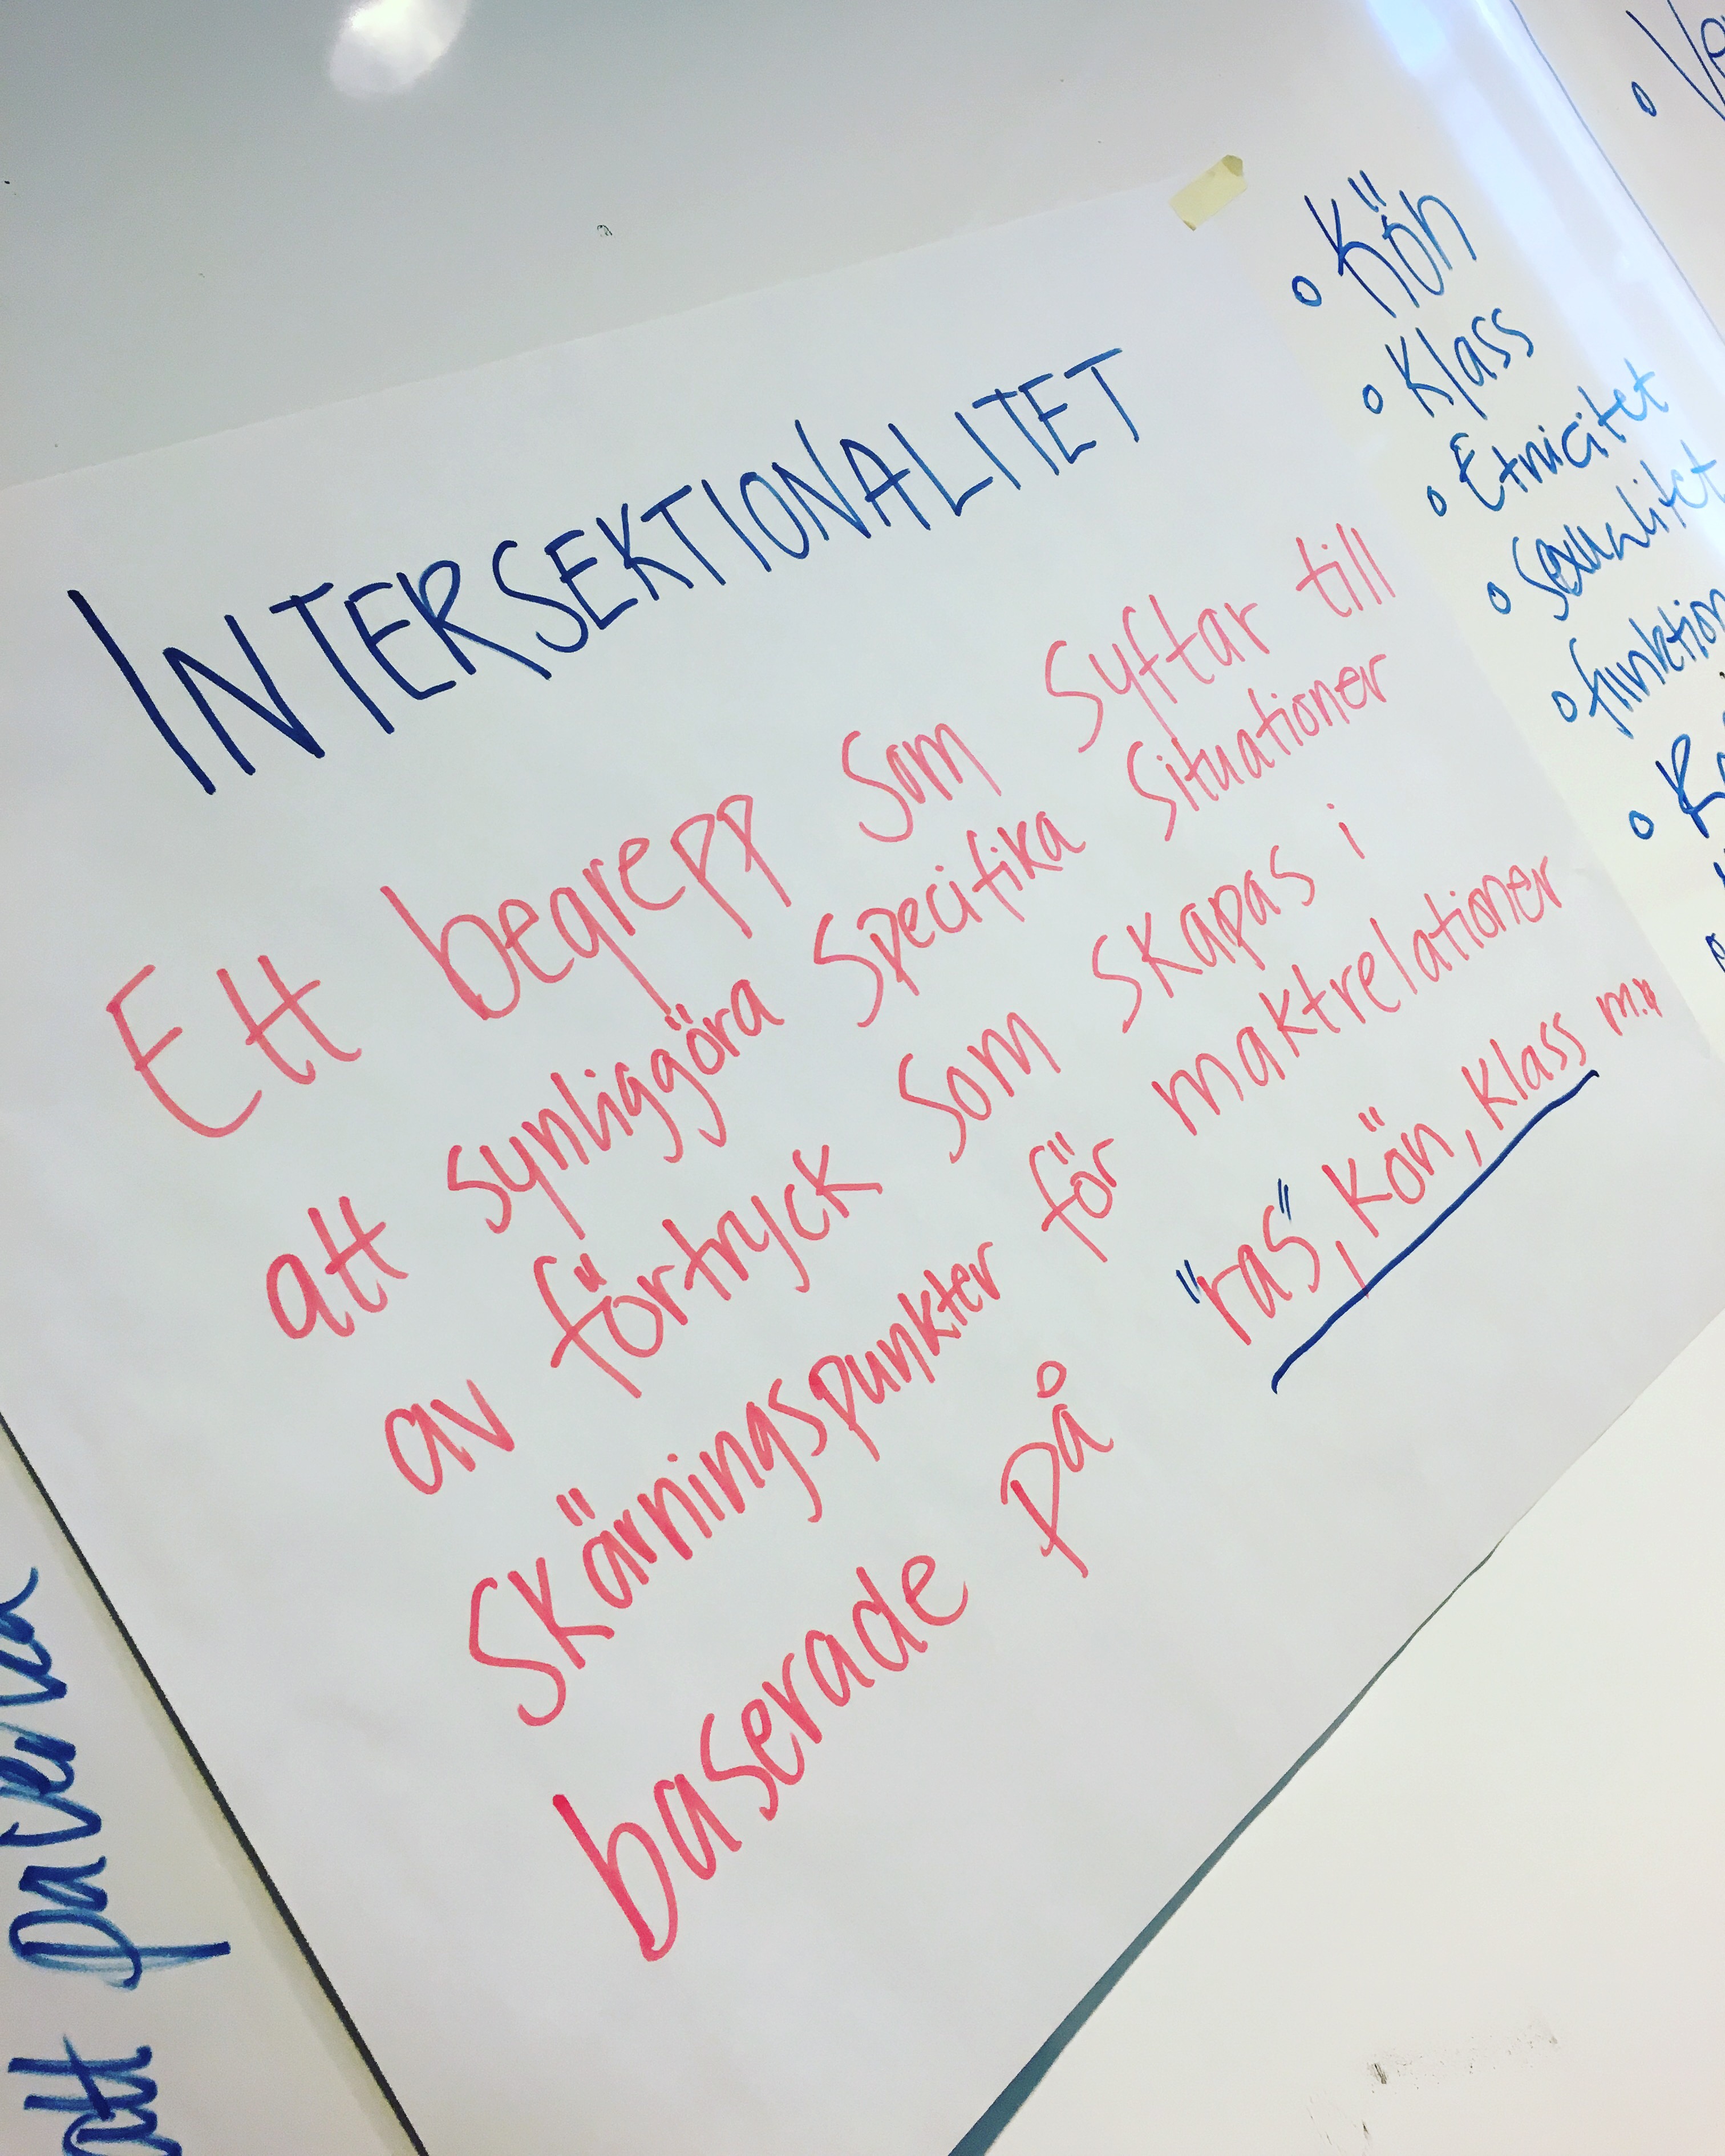 INTERSEKTIONALITET
Ett begrepp som syftar till
att synliggöra specifika situationer
av förtryck som skapas i
skärningspunkter för maktrelationer
baserade på "ras", kön, klass m.m
• Kön
• Klass
• Etnicitet
• Sexualitet
• funktion
att påverka